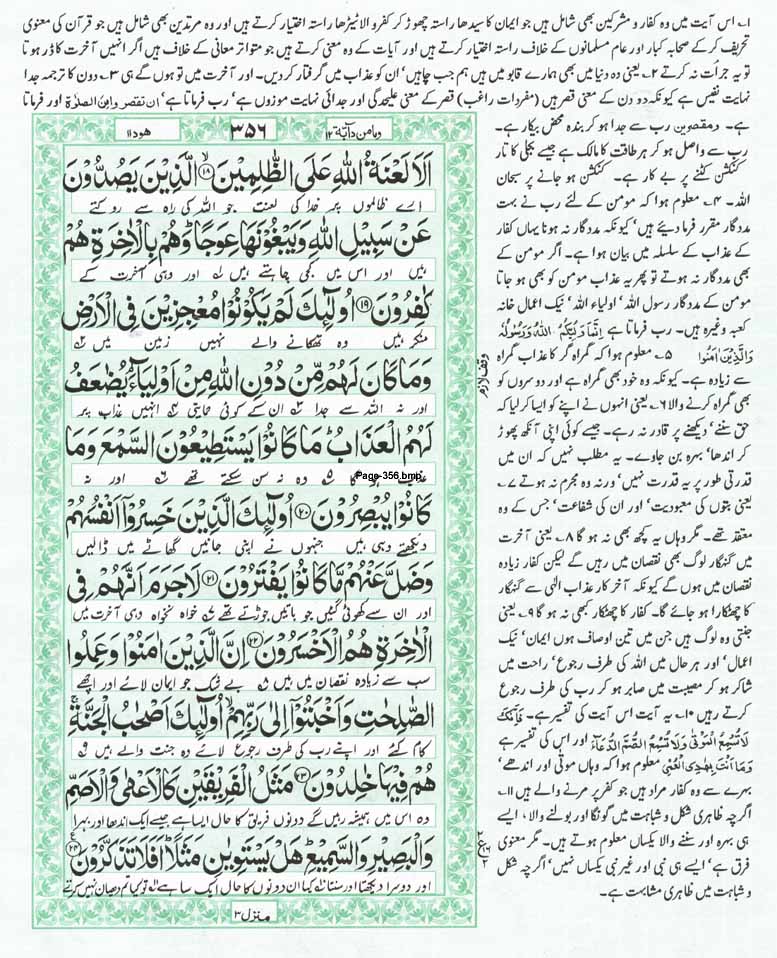 ۱۔ اس آیت میں وہ کفار و مشرکین بھی شامل ہیں جو ایمان کا سیدھا راستہ چھوڑ کر کفر و الا ٹیڑھا راستہ اختیار کرتے ہیں اور وہ مرتدین بھی شامل ہیں جو قرآن کی معنوی
تحریف کر کے صحابہ کبار اور عام مسلمانوں کے خلاف راستہ اختیار کرتے ہیں اور آیات کے وہ معنی کرتے ہیں جو متواتر معانی کے خلاف ہیں اگر انہیں آخرت کا ڈر ہوتا
تو یہ جرأت نہ کرتے ۲۔ یعنی وہ دنیا میں بھی ہمارے قابو میں ہیں ہم جب چاہیں' ان کو عذاب میں گرفتار کر دیں۔ اور آخرت میں تو ہوں گے ہی ۳۔ دون کا ترجمہ جدا
نہایت نفیس ہے کیونکہ دو دن کے معنی قصر ہیں (مفردات راغب) قصر کے معنی علیحدگی اور جدائی نہایت موزوں ہے' رب فرماتا ہے' ان تقصر وامن الصلوٰۃ اور فرماتا
ہے۔ رب سے جدا ہو کر بندہ محض بیکار ہے۔
رب سے واصل ہو کر ہر طاقت کا مالک ہے جیسے بجلی کا تار
کنکشن کٹنے پر بے کار ہے۔ کنکشن ہو جانے پر سبحان
اللہ۔ ۴۔ معلوم ہوا کہ مومن کے لئے رب نے بہت
مددگار مقرر فرما دیئے ہیں' کیونکہ مددگار نہ ہونا یہاں کفار
کے عذاب کے سلسلہ میں بیان ہوا ہے۔ اگر مومن کے
بھی مددگار نہ ہوتے تو پھر یہ عذاب مومن کو بھی ہو جاتا
مومن کے مددگار رسول اللہ' اولیاء اللہ' نیک اعمال خانہ
کعبہ وغیرہ ہیں۔ رب فرماتا ہے اِنَّمَا وَلِیُّکُمُ اللّٰہُ وَرَسُوْلُہٗ
وَالَّذِیْنَ اٰمَنُوْا ۵۔ معلوم ہوا کہ گمراہ گر کا عذاب گمراہ
سے زیادہ ہے۔ کیونکہ وہ خود بھی گمراہ ہے اور دوسروں کو
بھی گمراہ کرنے والا ۶۔ یعنی انہوں نے اپنے کو ایسا کر لیا کہ
حق سننے' دیکھنے پر قادر نہ رہے۔ جیسے کوئی اپنی آنکھ پھوڑ
کر اندھا' بہرہ بن جاوے۔ یہ مطلب نہیں کہ ان میں
قدرتی طور پر یہ قدرت نہیں' ورنہ وہ مجرم نہ ہوتے ۷۔
یعنی بتوں کی معبودیت' اور ان کی شفاعت' جس کے وہ
معتقد تھے۔ مگر وہاں یہ کچھ بھی نہ ہو گا ۸۔ یعنی آخرت
میں گنہگار لوگ بھی نقصان میں رہیں گے لیکن کفار زیادہ
نقصان میں ہوں گے کیونکہ آخر کار عذاب الٰہی سے گنہگار
کا چھٹکارا ہو جائے گا۔ کفار کا چھٹکار کبھی نہ ہو گا ۹۔ یعنی
جنتی وہ لوگ ہیں جن میں تین اوصاف ہوں ایمان' نیک
اعمال' اور ہر حال میں اللہ کی طرف رجوع' راحت میں
شاکر ہو کر مصیبت میں صابر ہو کر رب کی طرف رجوع
کرتے رہیں ۱۰۔ یہ آیت اس آیت کی تفسیر ہے۔ فَاِنَّکَ
لَا تُسْمِعُ الْمَوْتٰی وَلَا تُسْمِعُ الصُّمَّ الدُّعَآءَ اور اس کی تفسیر ہے
وَمَآ اَنْتَ بِھٰدِی الْعُمْیِ معلوم ہوا کہ وہاں موتٰی اور اندھے'
بہرے سے وہ کفار مراد ہیں جو کفر پر مرنے والے ہیں ۱۱۔
اگرچہ ظاہری شکل و شباہت میں گونگا اور بولنے والا' ایسے
ہی بہرہ اور سننے والا یکساں معلوم ہوتے ہیں۔ مگر معنوی
فرق ہے' ایسے ہی نبی اور غیر نبی یکساں نہیں' اگرچہ شکل
و شباہت میں ظاہری مشابہت ہے۔
ھود ۱۱
۳۵۶
ومامن دآبۃ ۱۲
اَلَا لَعْنَةُ اللّٰهِ عَلَى الظّٰلِمِيْنَ ۙ۱۸ الَّذِيْنَ يَصُدُّوْنَ
ارے ظالموں پر خدا کی لعنت جو اللہ کی راہ سے روکتے
عَنْ سَبِيْلِ اللّٰهِ وَيَبْغُوْنَهَا عِوَجًا ؕ وَهُمْ بِالْاٰخِرَةِ هُمْ
ہیں اور اس میں کجی چاہتے ہیں ۱ اور وہی آخرت کے
كٰفِرُوْنَ ۱۹ اُولٰٓئِكَ لَمْ يَكُوْنُوْا مُعْجِزِيْنَ فِى الْاَرْضِ
منکر ہیں وہ تھکانے والے نہیں زمین میں ۲
وَمَا كَانَ لَهُمْ مِّنْ دُوْنِ اللّٰهِ مِنْ اَوْلِيَآءَ ۘ يُضٰعَفُ
اور نہ اللہ سے جدا ۳ ان کے کوئی حمایتی ۴ انہیں عذاب پر
لَهُمُ الْعَذَابُ ؕ مَا كَانُوْا يَسْتَطِيْعُوْنَ السَّمْعَ وَمَا
عذاب ہو گا ۵ وہ نہ سن سکتے تھے ۶ اور نہ
Page-356.bmp
كَانُوْا يُبْصِرُوْنَ ۲۰ اُولٰٓئِكَ الَّذِيْنَ خَسِرُوْٓا اَنْفُسَهُمْ
دیکھتے وہی ہیں جنہوں نے اپنی جانیں گھاٹے میں ڈالیں
وَضَلَّ عَنْهُمْ مَّا كَانُوْا يَفْتَرُوْنَ ۲۱ لَا جَرَمَ اَنَّهُمْ فِى
اور ان سے کھوئی گئیں جو باتیں جوڑتے تھے ۷ خواہ نخواہ وہی آخرت میں
الْاٰخِرَةِ هُمُ الْاَخْسَرُوْنَ ۲۲ اِنَّ الَّذِيْنَ اٰمَنُوْا وَعَمِلُوا
سب سے زیادہ نقصان میں ہیں ۸ بے شک جو ایمان لائے اور اچھے
الصّٰلِحٰتِ وَاَخْبَتُوْٓا اِلٰى رَبِّهِمْ ۙ اُولٰٓئِكَ اَصْحٰبُ الْجَنَّةِ ۚ
کام کئے اور اپنے رب کی طرف رجوع لائے وہ جنت والے ہیں ۹
هُمْ فِيْهَا خٰلِدُوْنَ ۲۳ مَثَلُ الْفَرِيْقَيْنِ كَالْاَعْمٰى وَالْاَصَمِّ
وہ اس میں ہمیشہ رہیں گے دونوں فریق کا حال ایسا ہے جیسے ایک اندھا اور بہرا
وَالْبَصِيْرِ وَالسَّمِيْعِ ؕ هَلْ يَسْتَوِيٰنِ مَثَلًا ؕ اَفَلَا تَذَكَّرُوْنَ ۲۴
اور دوسرا دیکھتا اور سنتا ۱۰ کیا ان دونوں کا حال ایک سا ہے ۱۱ تو کیا تم دھیان نہیں کرتے
منزل ۳
وقف لازم